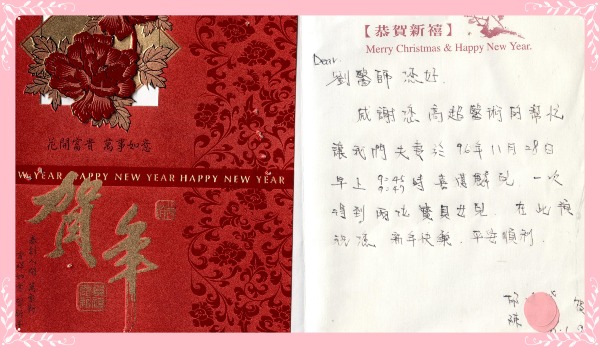 花開富貴 萬事如意
W YEAR HAPPY NEW YEAR HAPPY NEW YEAR
賀年
【恭賀新禧】
Merry Christmas & Happy New Year.
Dear.
劉醫師 您好.
感謝您高超醫術的幫忙
讓我們夫妻於96年11月28日
早上 9:45 9:47 時喜獲麟兒. 一次
得到兩位寶貝女兒. 在此預
祝您 新年快樂. 平安順利.